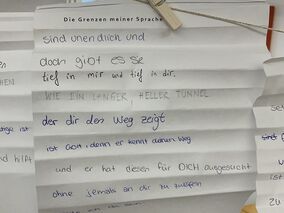 Die Grenzen meiner Sprache
sind unendlich und
doch gibt es sie
tief in mir und tief in dir.
WIE EIN LANGER, HELLER TUNNEL
der dir den Weg zeigt
ist Gott, denn er kennt deinen Weg
und er hat diesen für DICH ausgesucht
ohne jemals an dir zu zweifeln